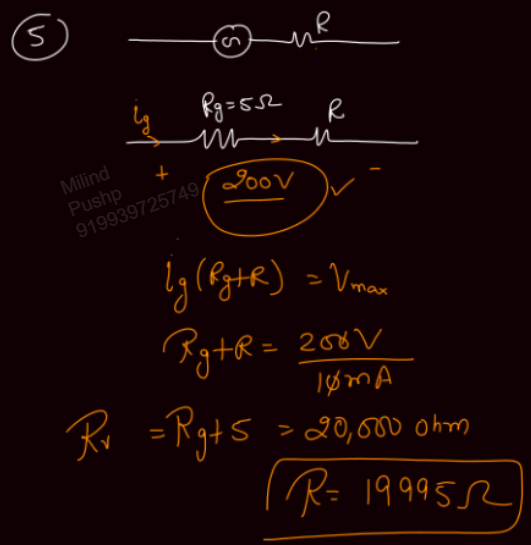 5
G R
ig Rg=5Ω R
+ 200V ✓ -
Milind
Pushp
919939725749
ig(Rg+R) = Vmax
Rg+R = 200V
10mA
Rv = Rg+5 = 20,000 ohm
R = 19995Ω